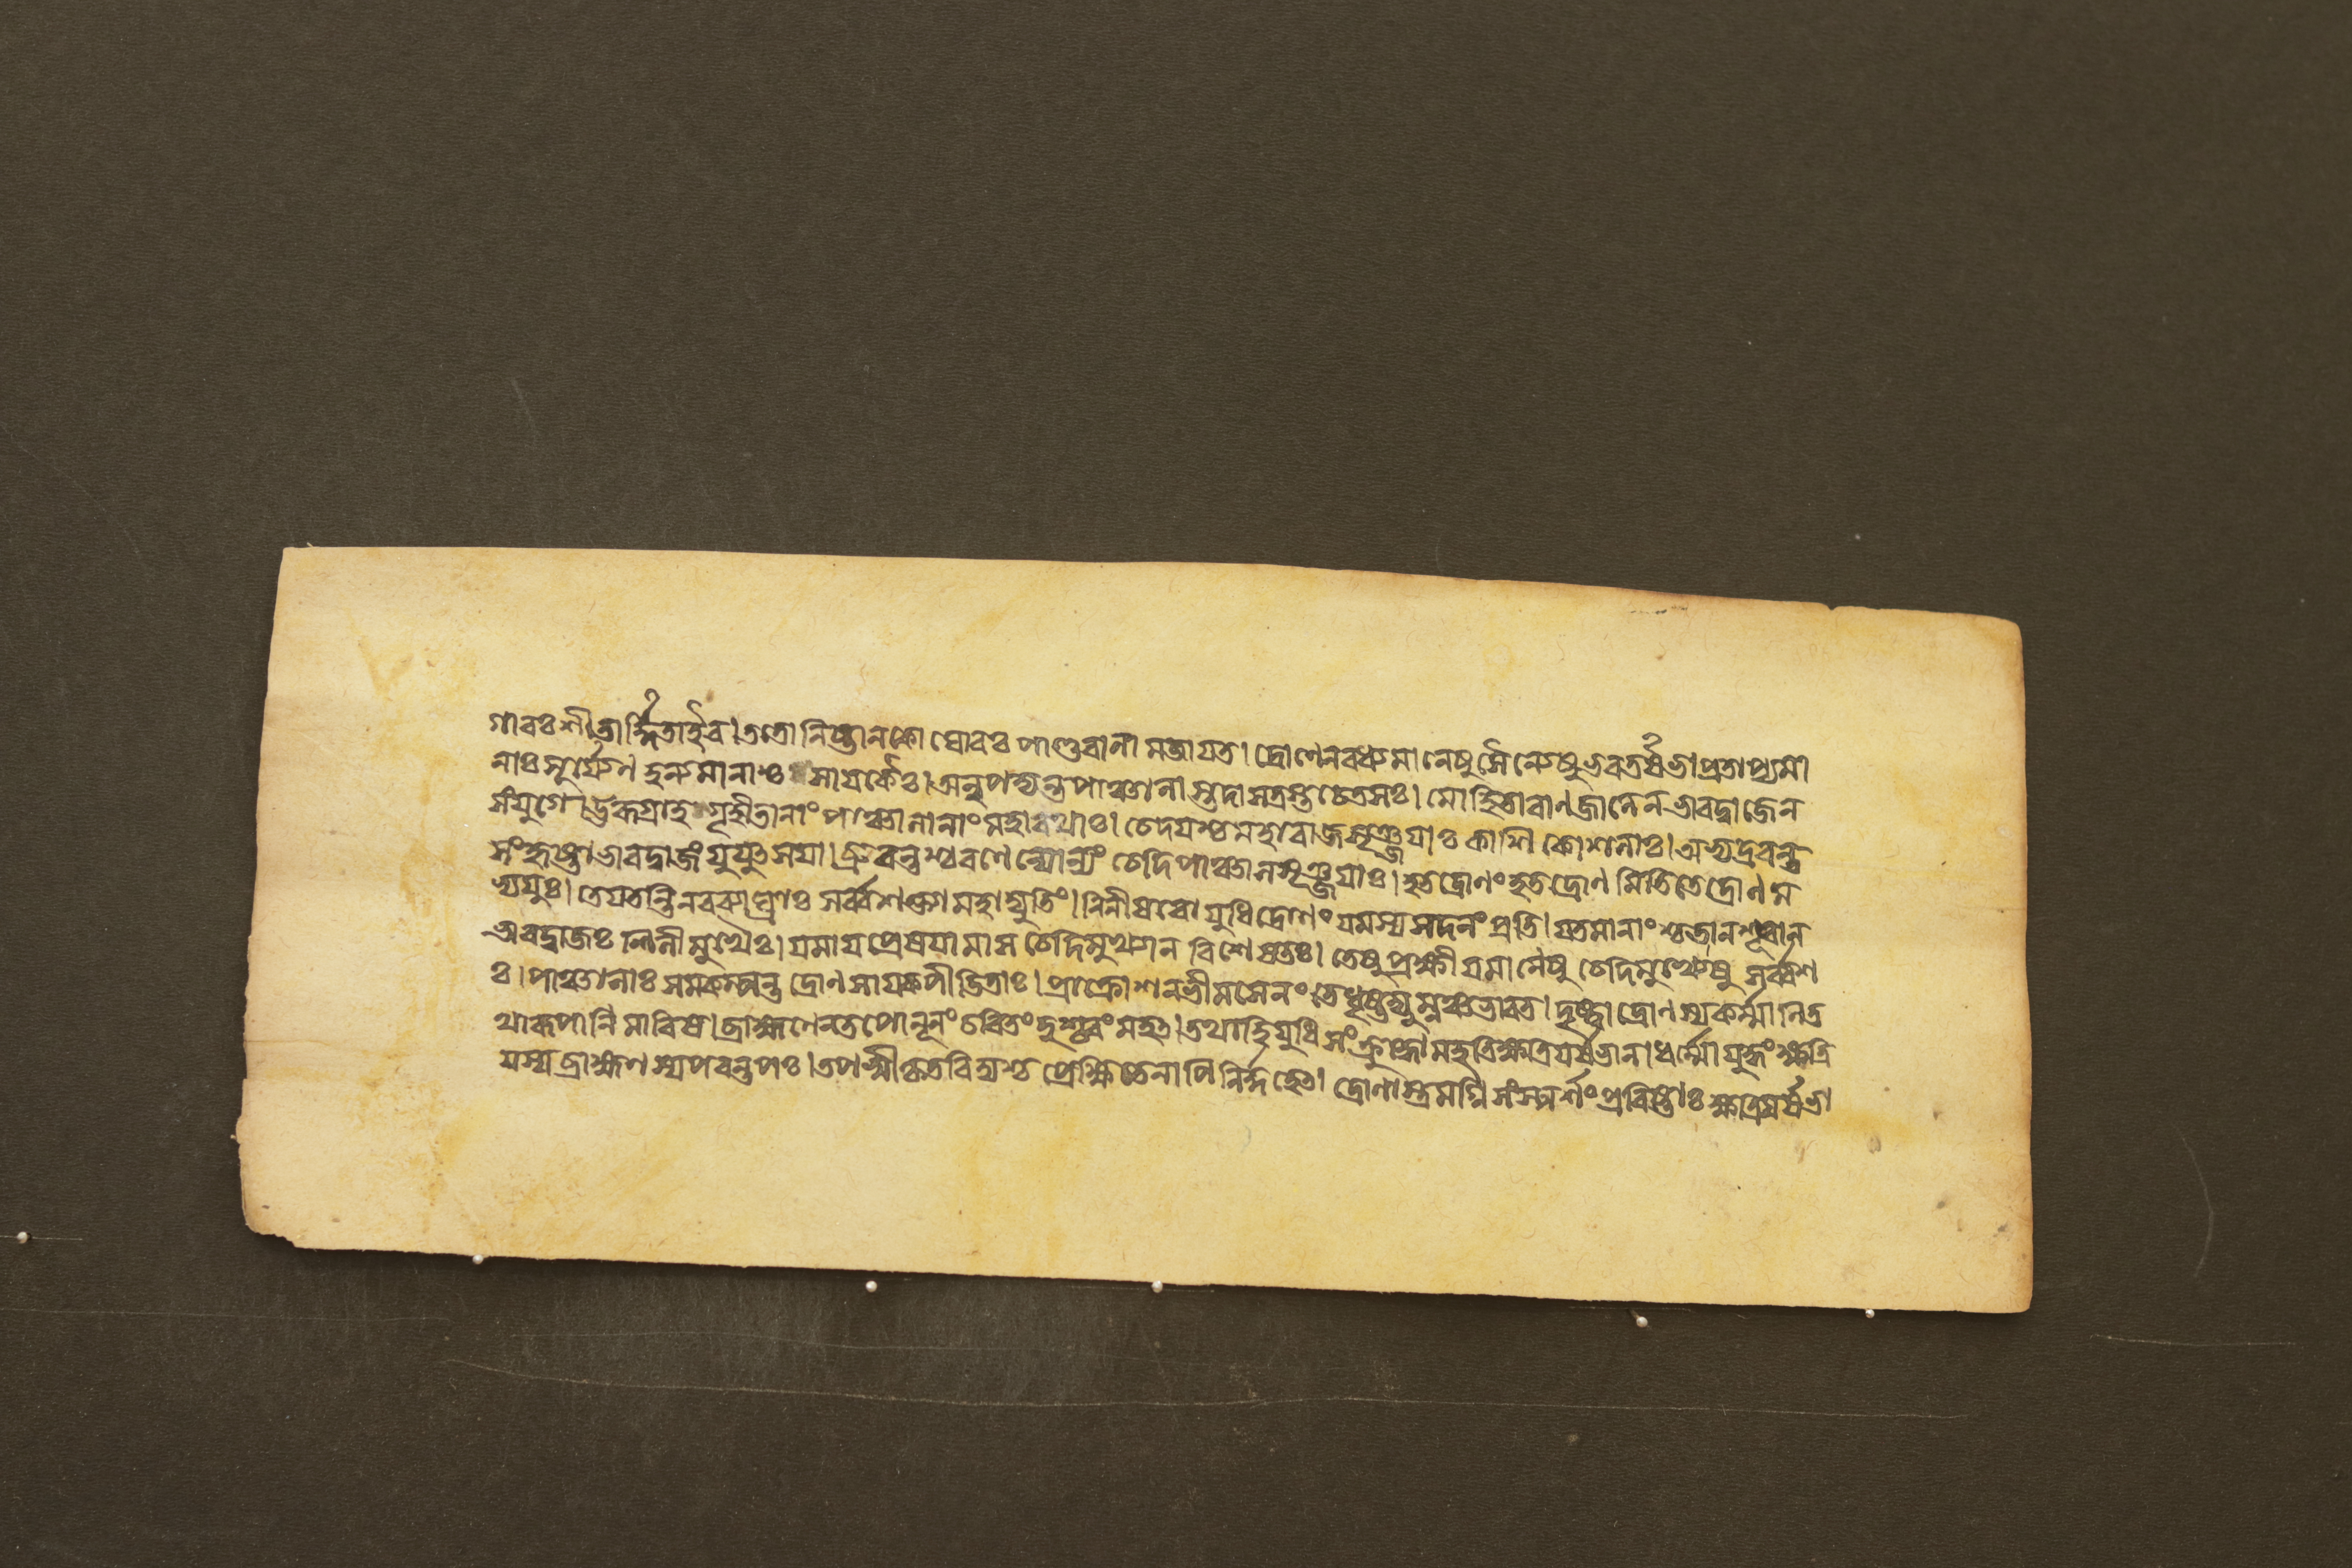 গাবঃ শীতার্দ্দিতা ইব। ততো নিষ্টানকো ঘোরঃ পাণ্ডবানামজায়ত। দ্রোণেন বধ্যমানেষু সৈন্যেষু ভরতর্ষভ। প্রতাপ্যমা
নাঃ সূর্য্যেণ হন্যমানাশ্চ সায়কৈঃ। অন্বপদ্যন্ত পাঞ্চালাস্তদা সত্রস্তচেতসঃ। মোহিতা বাণজালেন ভারদ্বাজেন
সংযুগে। ঊরুগ্রাহগৃহীতানাং পাঞ্চালানাং মহারথাঃ। চেদয়শ্চ মহারাজ সৃঞ্জয়াঃ কাশিকোশলাঃ। অভ্যদ্রবন্ত
সংহৃষ্টা ভারদ্বাজং যুযুৎসয়া। ব্রুবন্তশ্চ রণে ন্যোন্যং চেদিপাঞ্চালসৃঞ্জয়াঃ। হত দ্রোণং হত দ্রোণমিতি তে দ্রোণম
ভ্যযুঃ। তে যতন্তি নরব্যাঘ্রাঃ সর্ব্বশক্ত্যা মহাদ্যুতিং। নিনীষবো যুধি দ্রোণং যমস্য সদনং প্রতি। যতমানাংশ্চ তান শূরান
ভারদ্বাজঃ শিলীমুখৈঃ। যমায় প্রেষয়ামাস চেদিমুখ্যান বিশেষতঃ। তেষু প্রক্ষীয়মানেষু চেদিমুখ্যেষু সর্ব্বশ
ঃ। পাঞ্চালাঃ সমকম্পন্ত দ্রোণসায়কপীডিতাঃ। প্রাক্রোশন ভীমসেনং তে ধৃষ্টদ্যুম্নঞ্চ ভারত। দৃষ্ট্বা দ্রোণস্য কর্ম্মানি ত
থারূপানি মারিষ। ব্রাহ্মণেন তপো নূনং চরিতং দুশ্চরং মহৎ। তথা হি যুধি সংক্রুদ্ধো দহতি ক্ষত্রিয়র্ষভান। ধর্ম্মো যুদ্ধং ক্ষত্রি
যস্য ব্রাহ্মণস্য পরন্তপঃ। তপস্বী কৃতবিদ্যশ্চ প্রেক্ষিতেনাপি নির্দ্দহেৎ। দ্রোণাস্ত্রমগ্নিসংস্পর্শং প্রবিষ্টাঃ ক্ষত্রিয়র্ষভা